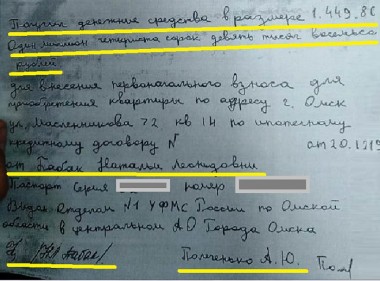 Получил денежные средства в размере 1.449.80
Один миллион четыриста сорок девять тысяч восемьсо
рублей
для внесения первоначального взноса для
приобретения квартиры по адресу г. Омск
ул. Масленникова 72 кв 14 по ипотечному
кредитному договору № от 20.1219
от Бабак Натальи Леонидовны
Паспорт Серия номер
Выдан Отделом №1 УФМС России по Омской
области в центральном АО Города Омска
Помченко А.Ю.